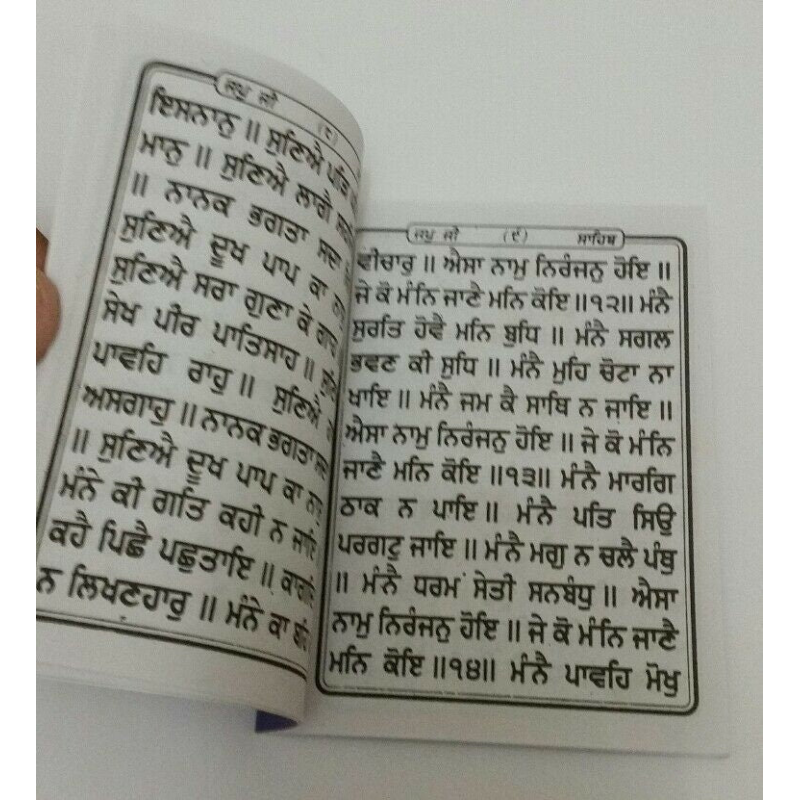 ਜਪੁ ਜੀ (੮)
ਇਸਨਾਨੁ ॥ ਸੁਣਿਐ ਪੜਿ
ਮਾਨੁ ॥ ਸੁਣਿਐ ਲਾਗੈ
॥ ਨਾਨਕ ਭਗਤਾ ਸਦਾ
ਸੁਣਿਐ ਦੂਖ ਪਾਪ ਕਾ
ਸੁਣਿਐ ਸਰਾ ਗੁਣਾ ਕੇ ਗਾਹ
ਸੇਖ ਪੀਰ ਪਾਤਿਸਾਹ ॥
ਪਾਵਹਿ ਰਾਹੁ ॥ ਸੁਣਿਐ
ਅਸਗਾਹੁ ॥ ਨਾਨਕ ਭਗਤਾ ਸਦਾ
॥ ਸੁਣਿਐ ਦੂਖ ਪਾਪ ਕਾ ਨਾਸੁ
ਮੰਨੇ ਕੀ ਗਤਿ ਕਹੀ ਨ ਜਾਇ
ਕਹੈ ਪਿਛੈ ਪਛੁਤਾਇ ॥ ਕਾਗਦਿ
ਨ ਲਿਖਣਹਾਰੁ ॥ ਮੰਨੇ ਕਾ ਬਹਿ
ਜਪੁ ਜੀ (੯) ਸਾਹਿਬ
ਵੀਚਾਰੁ ॥ ਐਸਾ ਨਾਮੁ ਨਿਰੰਜਨੁ ਹੋਇ ॥
ਜੇ ਕੋ ਮੰਨਿ ਜਾਣੈ ਮਨਿ ਕੋਇ ॥੧੨॥ ਮੰਨੈ
ਸੁਰਤਿ ਹੋਵੈ ਮਨਿ ਬੁਧਿ ॥ ਮੰਨੈ ਸਗਲ
ਭਵਣ ਕੀ ਸੁਧਿ ॥ ਮੰਨੈ ਮੁਹਿ ਚੋਟਾ ਨਾ
ਖਾਇ ॥ ਮੰਨੈ ਜਮ ਕੈ ਸਾਥਿ ਨ ਜਾਇ ॥
ਐਸਾ ਨਾਮੁ ਨਿਰੰਜਨੁ ਹੋਇ ॥ ਜੇ ਕੋ ਮੰਨਿ
ਜਾਣੈ ਮਨਿ ਕੋਇ ॥੧੩॥ ਮੰਨੈ ਮਾਰਗਿ
ਠਾਕ ਨ ਪਾਇ ॥ ਮੰਨੈ ਪਤਿ ਸਿਉ
ਪਰਗਟੁ ਜਾਇ ॥ ਮੰਨੈ ਮਗੁ ਨ ਚਲੈ ਪੰਥੁ
॥ ਮੰਨੈ ਧਰਮ ਸੇਤੀ ਸਨਬੰਧੁ ॥ ਐਸਾ
ਨਾਮੁ ਨਿਰੰਜਨੁ ਹੋਇ ॥ ਜੇ ਕੋ ਮੰਨਿ ਜਾਣੈ
ਮਨਿ ਕੋਇ ॥੧੪॥ ਮੰਨੈ ਪਾਵਹਿ ਮੋਖੁ